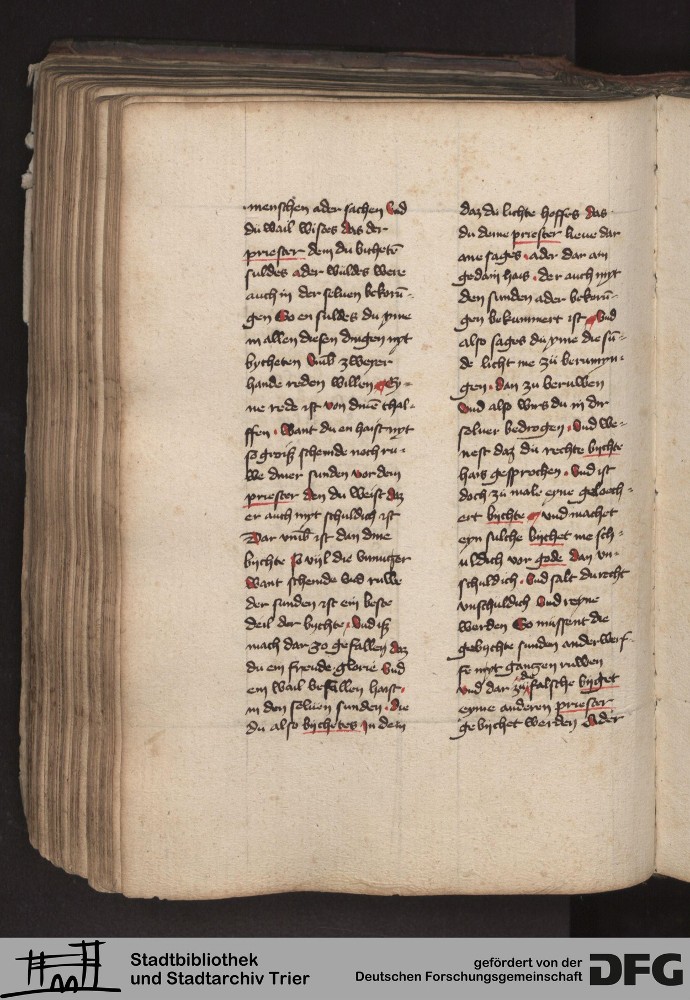 menschen ader sachen Vnd
du wail wistes das der
priester dem du bichetē
suldes ader wuldes were
auch in der seluen bekorū-
gen So en suldes du yme
in allen diesen dingen nyt
bycheten Vmb zweyer
hande reden willen Ey-
ne rede ist von dinē thal-
ffen. Want du en haist nyt
so groiß schemde noch ru-
we diner sunden vor dem
priester den du weist daz
er auch nyt schuldich ist
Dar vmb ist dan dine
bychte so vyl die vnnutzer
Want schemde vnd ruwe
der sunden ist ein beste
deil der bychte. Vnd iß
mach dar zo gefallen daz
du ein freude glorie Vnd
ein wail befallen haist.
in den seluen sunden. die
du also bychetes in dem
daz du lichte hoffes das
du deme priester lieue dar
ane sages. ader dar an
gedain hais. der auch nyt
den sunden ader bekorū-
gen bekummert ist Vnd
also sages du yme die sū-
de licht me zü berumyn-
gen. dan zu beruwen
Vnd also wirs du in dir
seluer bedrogen. Vnd we-
nest daz du rechte bychte
hais gesprochen. Vnd ist
doch zü male eyne geloich-
ert bychte vnd machet
eyn sulche bychet me sch-
uldich vor gode dan vn-
schuldich. Vnd salt du recht
vnschuldich Vnd reyne
werden So müssent die
gebychte sunden anderwerf-
fe myt gantzen ruwen
vnd dar zü de falsche bychet
eyme anderen priester
gebychet werden Ader
Stadtbibliothek
und Stadtarchiv Trier
gefördert von der
Deutschen Forschungsgemeinschaft
DFG